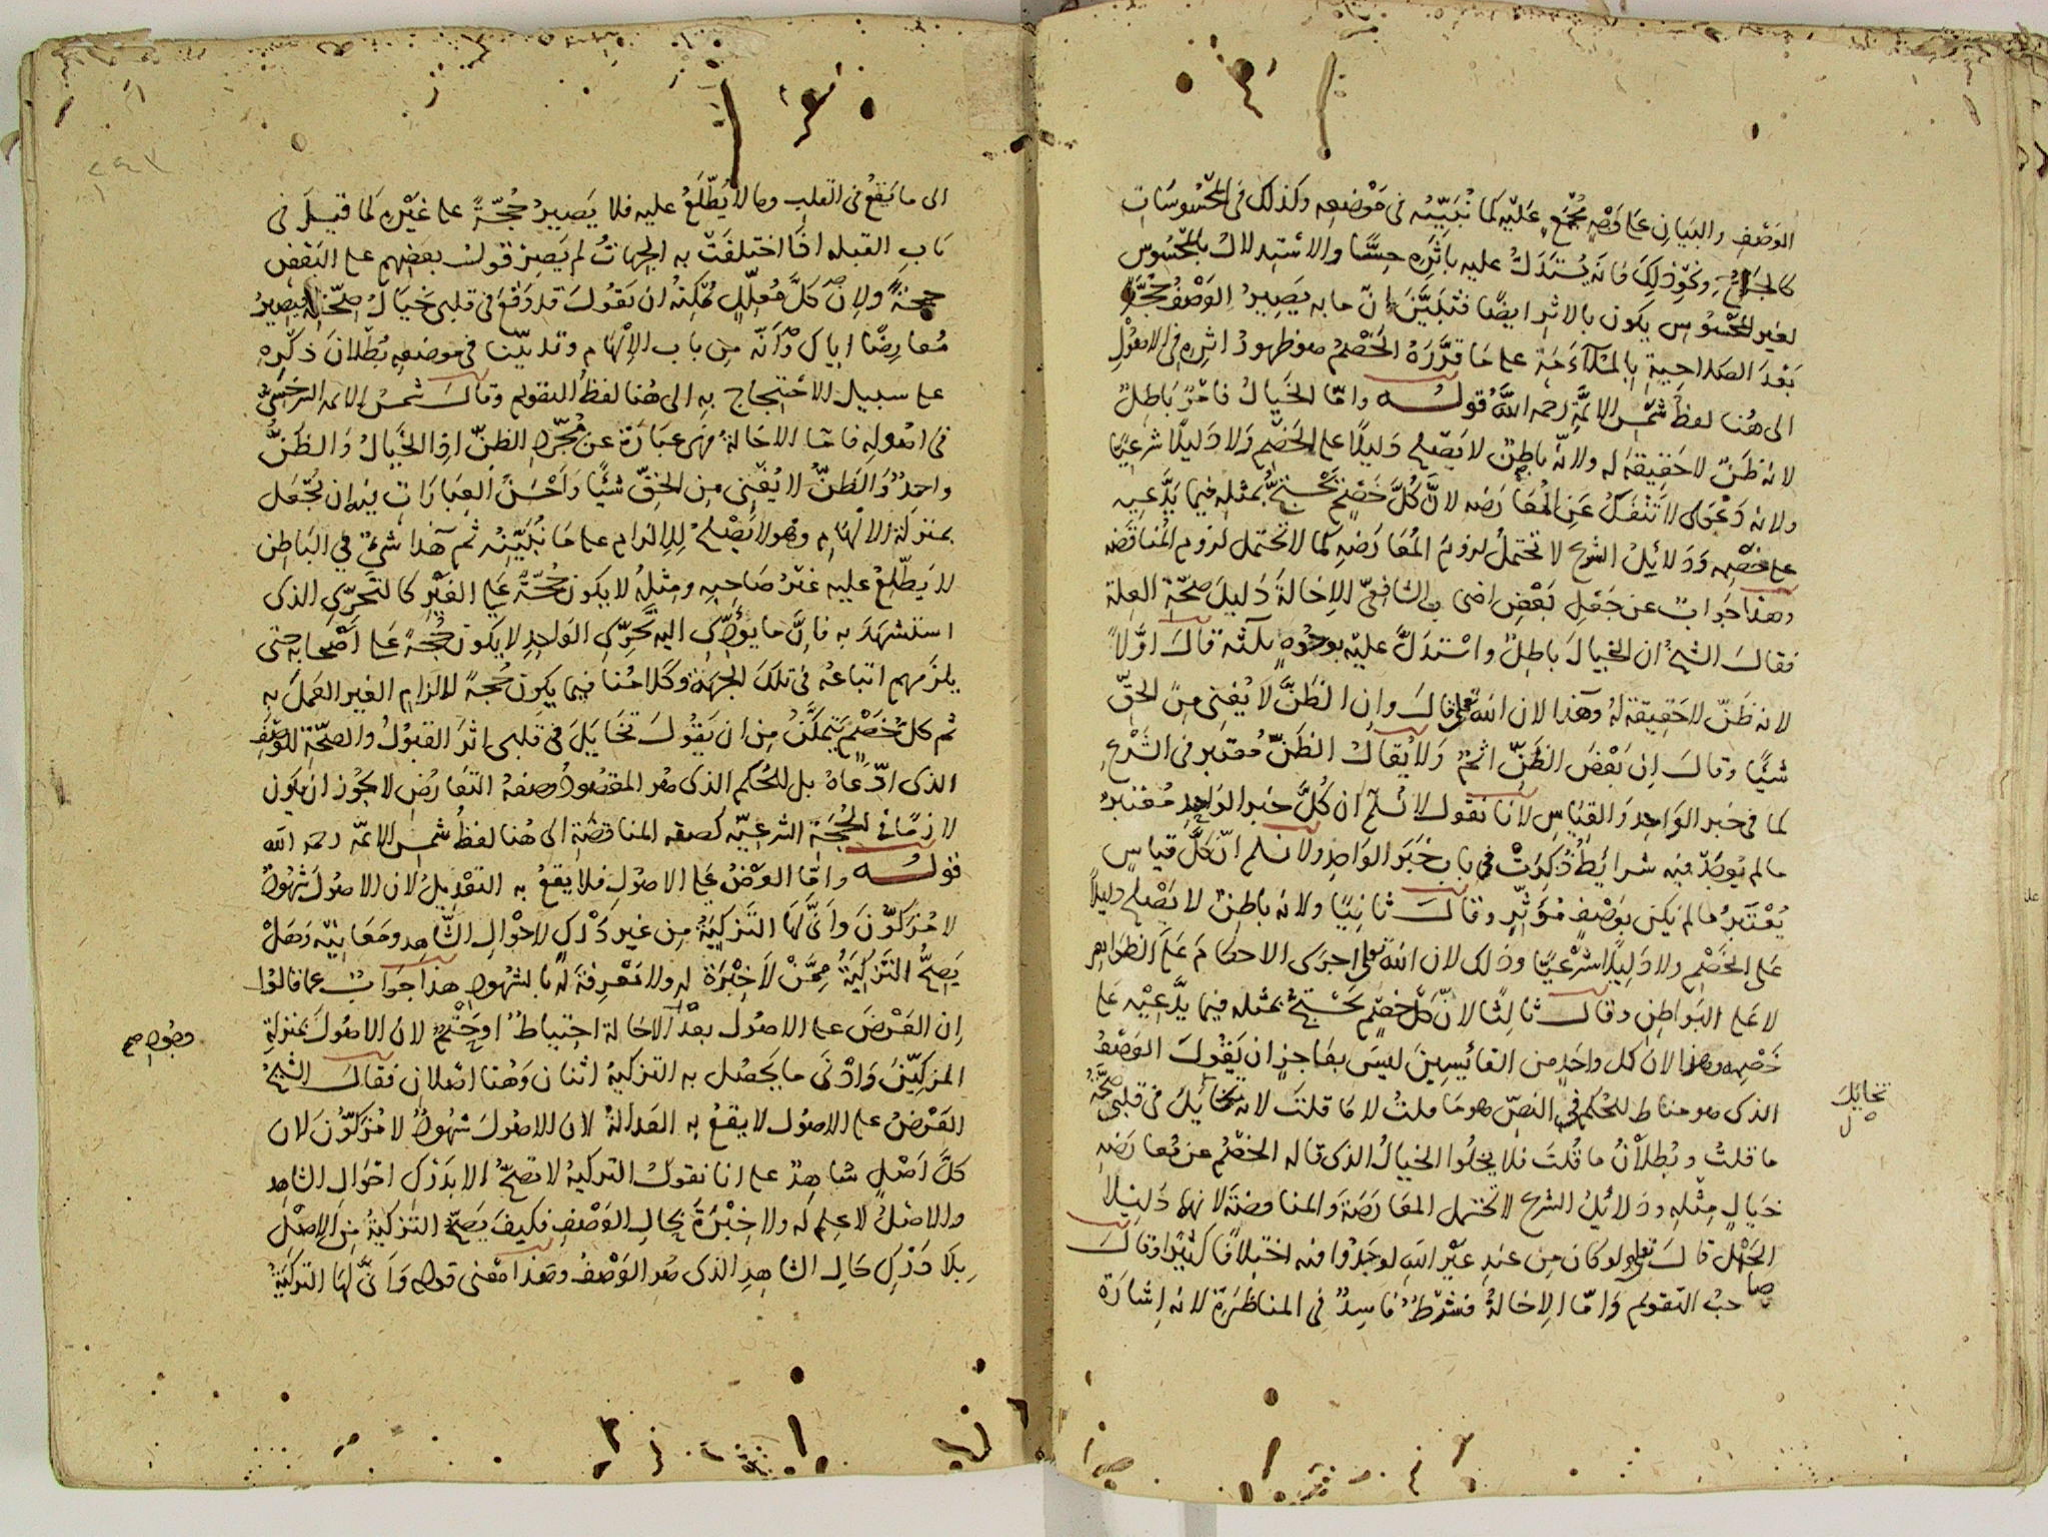 الوصف والبيان على وجه مجمع عليه كما نبينه فى موضعه وكذلك فى المحسوسات
كالجراح ونحو ذلك فانه يستدل عليه باثره حسا والاستدلال بالمحسوس
لغير المحسوس يكون بالاثر ايضا فتبين ان ما به يصير الوصف حجة
بعد الصلاحية بالملاءمة على ما قرره الخصم هو ظهور اثره فى الاصول
الى هنا لفظ شمس الائمة رحمه الله قوله واما الخيال فامر باطل
لانه ظن لا حقيقة له ولانه باطن لا يصلح دليلا على الخصم ولا دليلا شرعيا
ولانه دعوى لا تنفك عن المعارضه لان كل خصم يحتج بمثله فيما يدعيه
على خصمه ودلائل الشرع لا تحتمل لزوم المعارضه كما لا تحتمل لزوم المناقضه
وهذا جواب عن جعل بعض اصحاب الشافعى الاخالة دليل صحة العلة
فقال الشيخ ان الخيال باطل واستدل عليه بوجوه ثلثة قال اولا
لانه ظن لا حقيقة له وهذا لان الله تعالى قال وان الظن لا يغنى من الحق
شيئا وقال ان بعض الظن اثم ولا يقال الظن معتبر فى الشرع
كما فى خبر الواحد والقياس لانا نقول لا نسلم ان كل خبر الواحد معتبر
ما لم يوجد فيه شرائط ذكرت فى باب خبر الواحد ولا نسلم ان كل قياس
يعتبر ما لم يكن بوصف مؤثر وقال ثانيا ولانه باطن لا يصلح دليلا
على الخصم ولا دليلا شرعيا وذلك لان الله تعالى اجرى الاحكام على الظواهر
لا على البواطن وقال ثالثا لان كل خصم يحتج بمثله فيما يدعيه على
خصمه وهذا لان كل واحد من القائسين ليس بعاجز ان يقول الوصف
الذى هو مناط الحكم فى النص هو ما قلت لا ما قلت لانه تخايل فى قلبى صحة
تخايل
ما قلت وبطلان ما قلت فلا يخلوا الخيال الذى قاله الخصم عن معارضه
خيال مثله ودلائل الشرع لا تحتمل المعارضة والمناقضة لانهما دليلا
الجهل قال تعالى ولو كان من عند غير الله لوجدوا فيه اختلافا كثيرا وقال
صاحب التقويم واما الاخالة فشرط فاسد فى المناظرة لانه اشارة
الى ما يقع فى القلب وما لا يطلع عليه فلا يصير حجة على غيره كما قيل فى
باب القبله اذا اختلفت به الجهات لم يصر قول بعضهم على البعض
حجة ولان كل معلل يمكنه ان يقول قد وقع فى قلبى خيال صحته فيصير
معارضا اياك وانه من باب الالهام وقد بينا فى موضعه بطلان ذكره
على سبيل الاحتجاج به الى هنا لفظ التقويم وقال شمس الائمه السرخسى
فى اصوله فاما الاخالة فهى عبارة عن مجرد الظن اذ الخيال والظن
واحد والظن لا يغنى من الحق شيئا واحسن العبارات فيه ان يجعل
بمنزلة الالهام وهو لا يصلح للالزام على ما نبينه ثم هذا شئ فى الباطن
لا يطلع عليه غير صاحبه ومثله لا يكون حجة على الغير كالتحرى الذى
استشهد به فان ما يؤدى اليه تحرى الواحد لا يكون حجة على اصحابه حتى
يلزمهم اتباعه فى تلك الجهة وكلامنا فيما يكون حجة لالزام الغير العمل به
ثم كل خصم يتمكن من ان يقول تخايل فى قلبى اثر القبول والصحة للوصف
الذى ادعاه بل للحكم الذى هو المقصود وصفة التعارض لا يجوز ان يكون
لازما فى الحجة الشرعيه كصفه المناقضة الى هنا لفظ شمس الائمه رحمه الله
قوله واما العرض على الاصول فلا يقع به التعديل لان الاصول شهود
لا مزكون وانى لها التزكية من غير درك لاحوال الشاهد ومعاينيه وهل
يصح التزكية ممن لا خبرة له ولا معرفة له بالشهود هذا جواب عما قالوا
ان العرض على الاصول بعد الاخالة احتياط او حتم لان الاصول بمنزلة
المزكين وادنى ما يحصل به التزكية اثنان وهنا اصلان فقال الشيخ
العرض على الاصول لا يقع به العدالة لان الاصول شهود لا مزكون لان
كل اصل شاهد على انا نقول التزكية لا تصح الا بدرك احوال الشاهد
والاصل لا علم له ولا خبرة بحال الوصف فكيف يصح التزكية من الاصل
بلا درك حال الشاهد الذى هو الوصف وهذا معنى قوله وانى لها التزكية